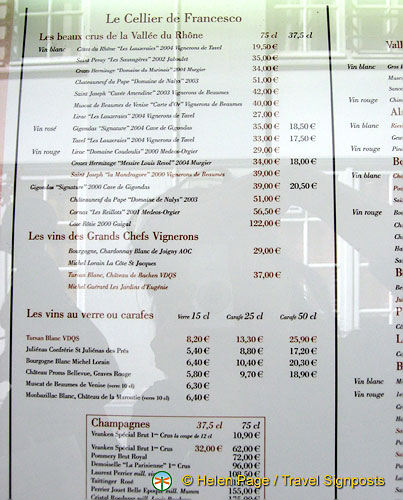 Le Cellier de Francesco
Les beaux crus de la Vallée du Rhône 75 cl 37,5 cl
Vin blanc Côtes du Rhône "Les Lauzeraies" 2004 Vignerons de Tavel 19,50 €
Saint Peray "Les Sauvagères" 2002 Jaboulet 35,00 €
Crozes Hermitage "Domaine du Murinais" 2004 Murgier 34,00 €
Chateauneuf du Pape "Domaine de Nalys" 2003 51,00 €
Saint Joseph "Cuvée Amandine" 2003 Vignerons de Beaumes 42,00 €
Muscat de Beaumes de Venise "Carte d'Or" Vignerons de Beaumes 40,00 €
Lirac "Les Lauzeraies" 2004 Vignerons de Tavel 27,00 €
Vin rosé Gigondas "Signature" 2004 Cave de Gigondas 35,00 € 18,50 €
Tavel "Les Lauzeraies" 2004 Vignerons de Tavel 33,00 € 17,50 €
Vin rouge Lirac "Domaine Coudoulis" 2000 Medeos-Orgier 29,00 €
Crozes Hermitage "Messire Louis Revol" 2004 Murgier 34,00 € 18,00 €
Saint Joseph "la Mandragore" 2000 Vignerons de Beaumes 39,00 €
Gigondas "Signature" 2000 Cave de Gigondas 39,00 € 20,50 €
Châteauneuf du Pape "Domaine de Nalys" 2003 51,00 €
Cornas "Les Reillots" 2001 Medeos-Orgier 56,50 €
Cote Rôtie 2000 Guigal 122,00 €
Les vins des Grands Chefs Vignerons
Bourgogne, Chardonnay Blanc de Joigny AOC 29,00 €
Michel Lorain La Côte St Jacques
Tursan Blanc, Château de Bachen VDQS 37,00 €
Michel Guérard Les Jardins d'Eugénie
Les vins au verre ou carafes Verre 15 cl Carafe 25 cl Carafe 50 cl
Tursan Blanc VDQS 8,20 € 13,30 € 25,90 €
Juliénas Confrérie St Juliénas des Prés 5,40 € 8,80 € 17,20 €
Bourgogne Blanc Michel Lorain 6,40 € 10,40 € 20,30 €
Château Proms Bellevue, Graves Rouge 5,80 € 9,70 € 18,90 €
Muscat de Beaumes de Venise (verre 10 cl) 6,30 €
Monbazillac Blanc, Château de la Maroutie (verre 10 cl) 6,40 €
Champagnes 37,5 cl 75 cl
Vranken Spécial Brut 1er Crus la coupe de 12 cl 10,90 €
Vranken Spécial Brut 1er Crus 32,00 € 62,00 €
Pommery Brut Royal 72,00 €
Demoiselle "La Parisienne" 1er Crus 96,00 €
Laurent Perrier mill. 108,50 €
Taittinger Rosé
Perrier Jouet Belle Epoque mill. Mumm 155,00 €
Cristal Roederer mill. 175,00 €
Vin blanc
Vin rouge
Vin blanc
Vin rouge
Vin blanc
Vin rouge
© Helen Page / Travel Signposts